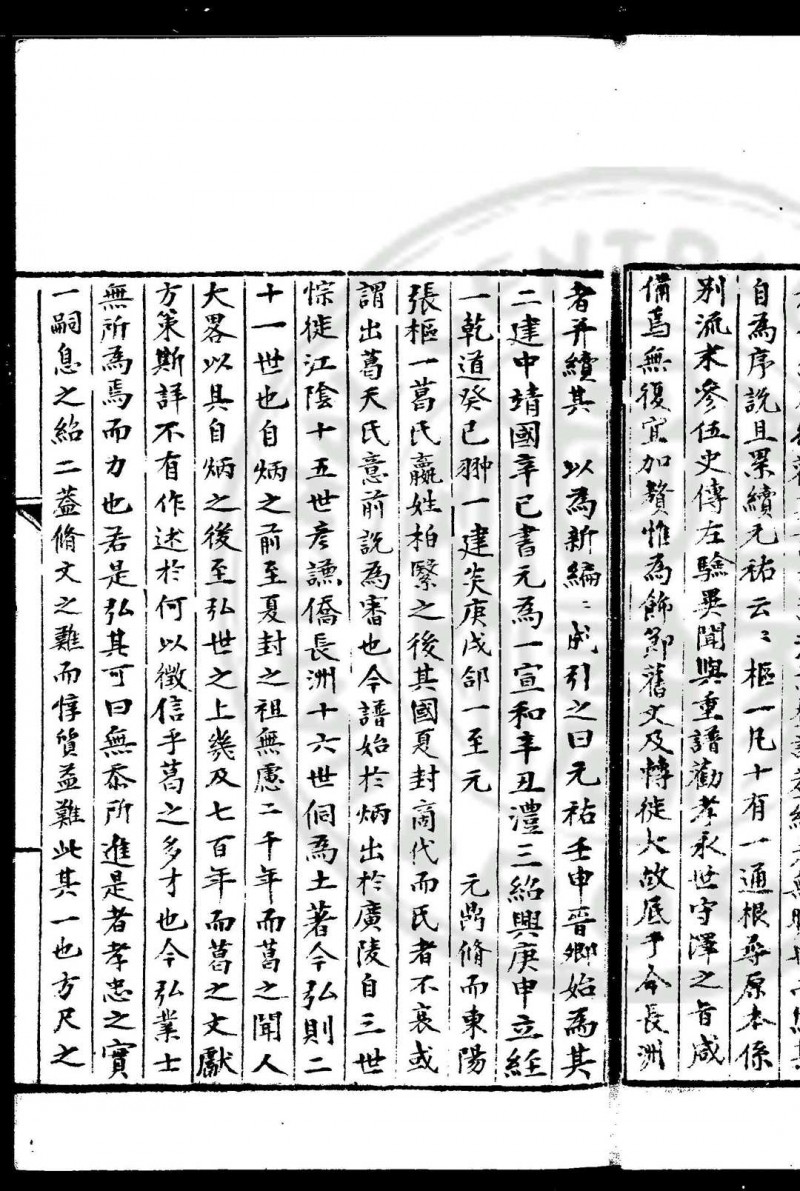 自為序說且累續元祐云〻樞一凡十有一通根尋原本係
別流末參伍史傳左驗異聞與重譜勸孝永世守澤之旨咸
備焉無復宜加贅惟為飾節舊文及轉徙大故底于今長洲
者并續其 以為新編〻成引之曰元祐壬申晉卿始為其
二建中靖國辛巳書元為一宣和辛丑澧三紹興庚申立經
一乾道癸巳翀一建炎庚戌郃一至元 元鼎脩而東陽
張樞一葛氏嬴姓柏繄之後其國夏封商代而氏者不衰或
謂出葛天氏意前說為審也今譜始於炳出於廣陵自三世
悰徙江陰十五世彥謙僑長洲十六世侗為土著今弘則二
十一世也自炳之前至夏封之祖無慮二千年而葛之聞人
大畧以具自炳之後至弘世之上幾及七百年而葛之文獻
方策斯詳不有作述於何以徵信乎葛之多才也今弘業士
無所為焉而力也若是弘其可曰無忝所進是者孝忠之實
一嗣息之紹二蓋脩文之難而惇質益難此其一也方尺之